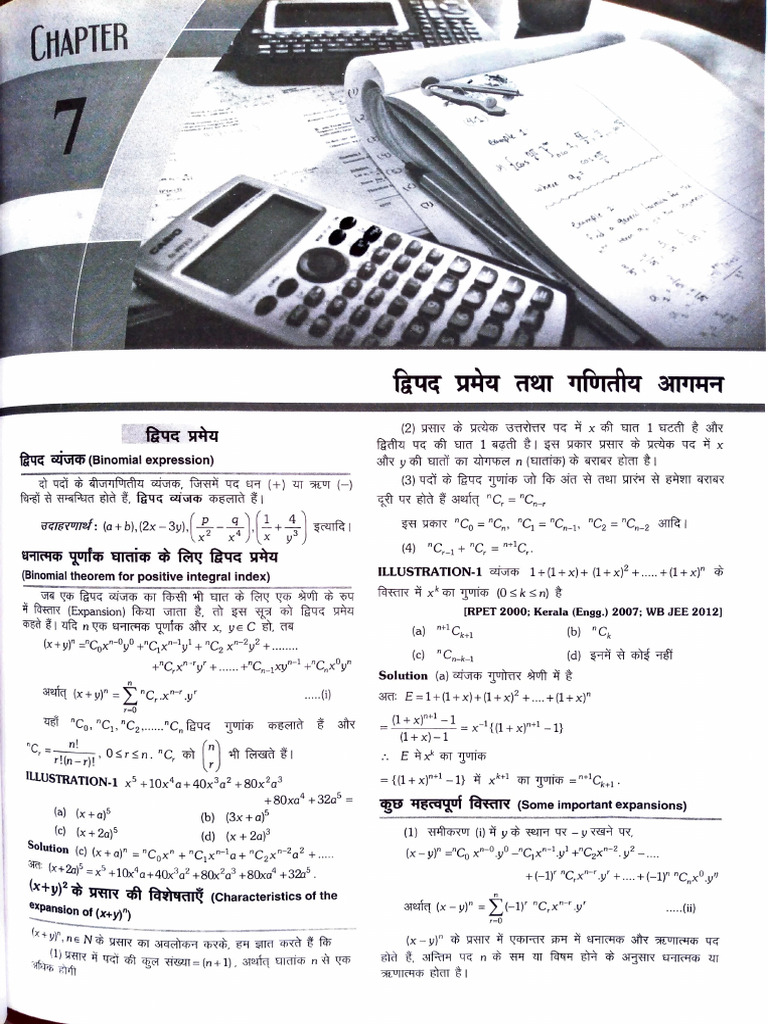 CHAPTER
7
CASIO
Example 1
where
Example 2
द्विपद प्रमेय तथा गणितीय आगमन
द्विपद प्रमेय
द्विपद व्यंजक (Binomial expression)
दो पदों के बीजगणितीय व्यंजक, जिसमें पद धन (+) या ऋण (–)
चिन्हों से सम्बन्धित होते हैं, द्विपद व्यंजक कहलाते हैं।
उदाहरणार्थ : (a + b), (2x − 3y), (p/x² − q/x⁴), (1/x + 4/y³) इत्यादि।
धनात्मक पूर्णांक घातांक के लिए द्विपद प्रमेय
(Binomial theorem for positive integral index)
जब एक द्विपद व्यंजक का किसी भी घात के लिए एक श्रेणी के रुप
में विस्तार (Expansion) किया जाता है, तो इस सूत्र को द्विपद प्रमेय
कहते हैं। यदि n एक धनात्मक पूर्णांक और x, y ∈ C हो, तब
(x + y)ⁿ = ⁿC₀xⁿ⁻⁰y⁰ + ⁿC₁xⁿ⁻¹y¹ + ⁿC₂ xⁿ⁻²y² + ........
+ ⁿCᵣxⁿ⁻ʳyʳ + ...... + ⁿCₙ₋₁xyⁿ⁻¹ + ⁿCₙx⁰yⁿ
अर्थात् (x + y)ⁿ = ∑ (r=0 to n) ⁿCᵣ.xⁿ⁻ʳ.yʳ .....(i)
यहाँ ⁿC₀, ⁿC₁, ⁿC₂,......ⁿCₙ द्विपद गुणांक कहलाते हैं और
ⁿCᵣ = n!/(r!(n − r)!), 0 ≤ r ≤ n. ⁿCᵣ को (n r) भी लिखते हैं।
ILLUSTRATION-1 x⁵ + 10x⁴a + 40x³a² + 80x²a³
+ 80xa⁴ + 32a⁵ =
(a) (x + a)⁵ (b) (3x + a)⁵
(c) (x + 2a)⁵ (d) (x + 2a)³
Solution (c) (x + a)ⁿ = ⁿC₀xⁿ + ⁿC₁xⁿ⁻¹a + ⁿC₂xⁿ⁻²a² + .....
अतः (x + 2a)⁵ = x⁵ + 10x⁴a + 40x³a² + 80x²a³ + 80xa⁴ + 32a⁵.
(x+y)² के प्रसार की विशेषताएँ (Characteristics of the
expansion of (x+y)ⁿ)
(x + y)ⁿ, n ∈ N के प्रसार का अवलोकन करके, हम ज्ञात करते हैं कि
(1) प्रसार में पदों की कुल संख्या = (n + 1), अर्थात् घातांक n से एक
अधिक होगी
(2) प्रसार के प्रत्येक उत्तरोत्तर पद में x की घात 1 घटती है और
द्वितीय पद की घात 1 बढ़ती है। इस प्रकार प्रसार के प्रत्येक पद में x
और y की घातों का योगफल n (घातांक) के बराबर होता है।
(3) पदों के द्विपद गुणांक जो कि अंत से तथा प्रारंभ से हमेशा बराबर
दूरी पर होते हैं अर्थात् ⁿCᵣ = ⁿCₙ₋ᵣ
इस प्रकार ⁿC₀ = ⁿCₙ, ⁿC₁ = ⁿCₙ₋₁, ⁿC₂ = ⁿCₙ₋₂ आदि।
(4) ⁿCᵣ₋₁ + ⁿCᵣ = ⁿ⁺¹Cᵣ.
ILLUSTRATION-1 व्यंजक 1 + (1 + x) + (1 + x)² + ..... + (1 + x)ⁿ के
विस्तार में xᵏ का गुणांक (0 ≤ k ≤ n) है
[RPET 2000; Kerala (Engg.) 2007; WB JEE 2012]
(a) ⁿ⁺¹Cₖ₊₁ (b) ⁿCₖ
(c) ⁿCₙ₋ₖ₋₁ (d) इनमें से कोई नहीं
Solution (a) व्यंजक गुणोत्तर श्रेणी में है
अतः E = 1 + (1 + x) + (1 + x)² + .... + (1 + x)ⁿ
= ((1 + x)ⁿ⁺¹ − 1)/((1 + x) − 1) = x⁻¹{(1 + x)ⁿ⁺¹ − 1}
∴ E मे xᵏ का गुणांक
= {(1 + x)ⁿ⁺¹ − 1} में xᵏ⁺¹ का गुणांक = ⁿ⁺¹Cₖ₊₁.
कुछ महत्वपूर्ण विस्तार (Some important expansions)
(1) समीकरण (i) में y के स्थान पर – y रखने पर,
(x − y)ⁿ = ⁿC₀ xⁿ⁻⁰.y⁰ − ⁿC₁xⁿ⁻¹.y¹ + ⁿC₂xⁿ⁻².y² − ....
+ (−1)ʳ ⁿCᵣxⁿ⁻ʳ.yʳ + .... + (−1)ⁿ ⁿCₙx⁰.yⁿ
अर्थात् (x − y)ⁿ = ∑ (r=0 to n) (−1)ʳ ⁿCᵣxⁿ⁻ʳ.yʳ .....(ii)
(x − y)ⁿ के प्रसार में एकान्तर क्रम में धनात्मक और ऋणात्मक पद
होते हैं, अन्तिम पद n के सम या विषम होने के अनुसार धनात्मक या
ऋणात्मक होता है।